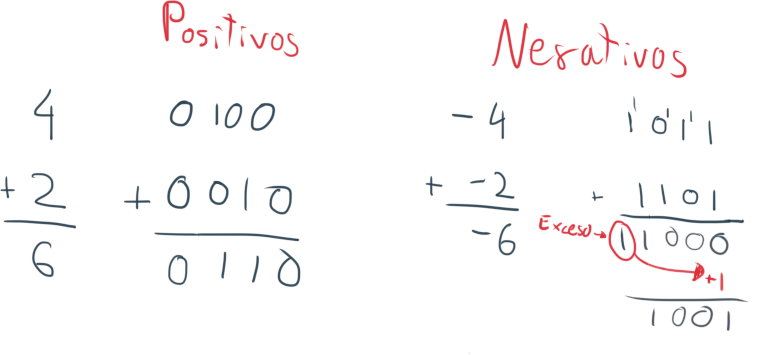 Positivos
4 0100
+ 2 + 0010
6 0110
Negativos
- 4 1011
+ -2 + 1101
-6 Exceso→ 11000
+1
1001